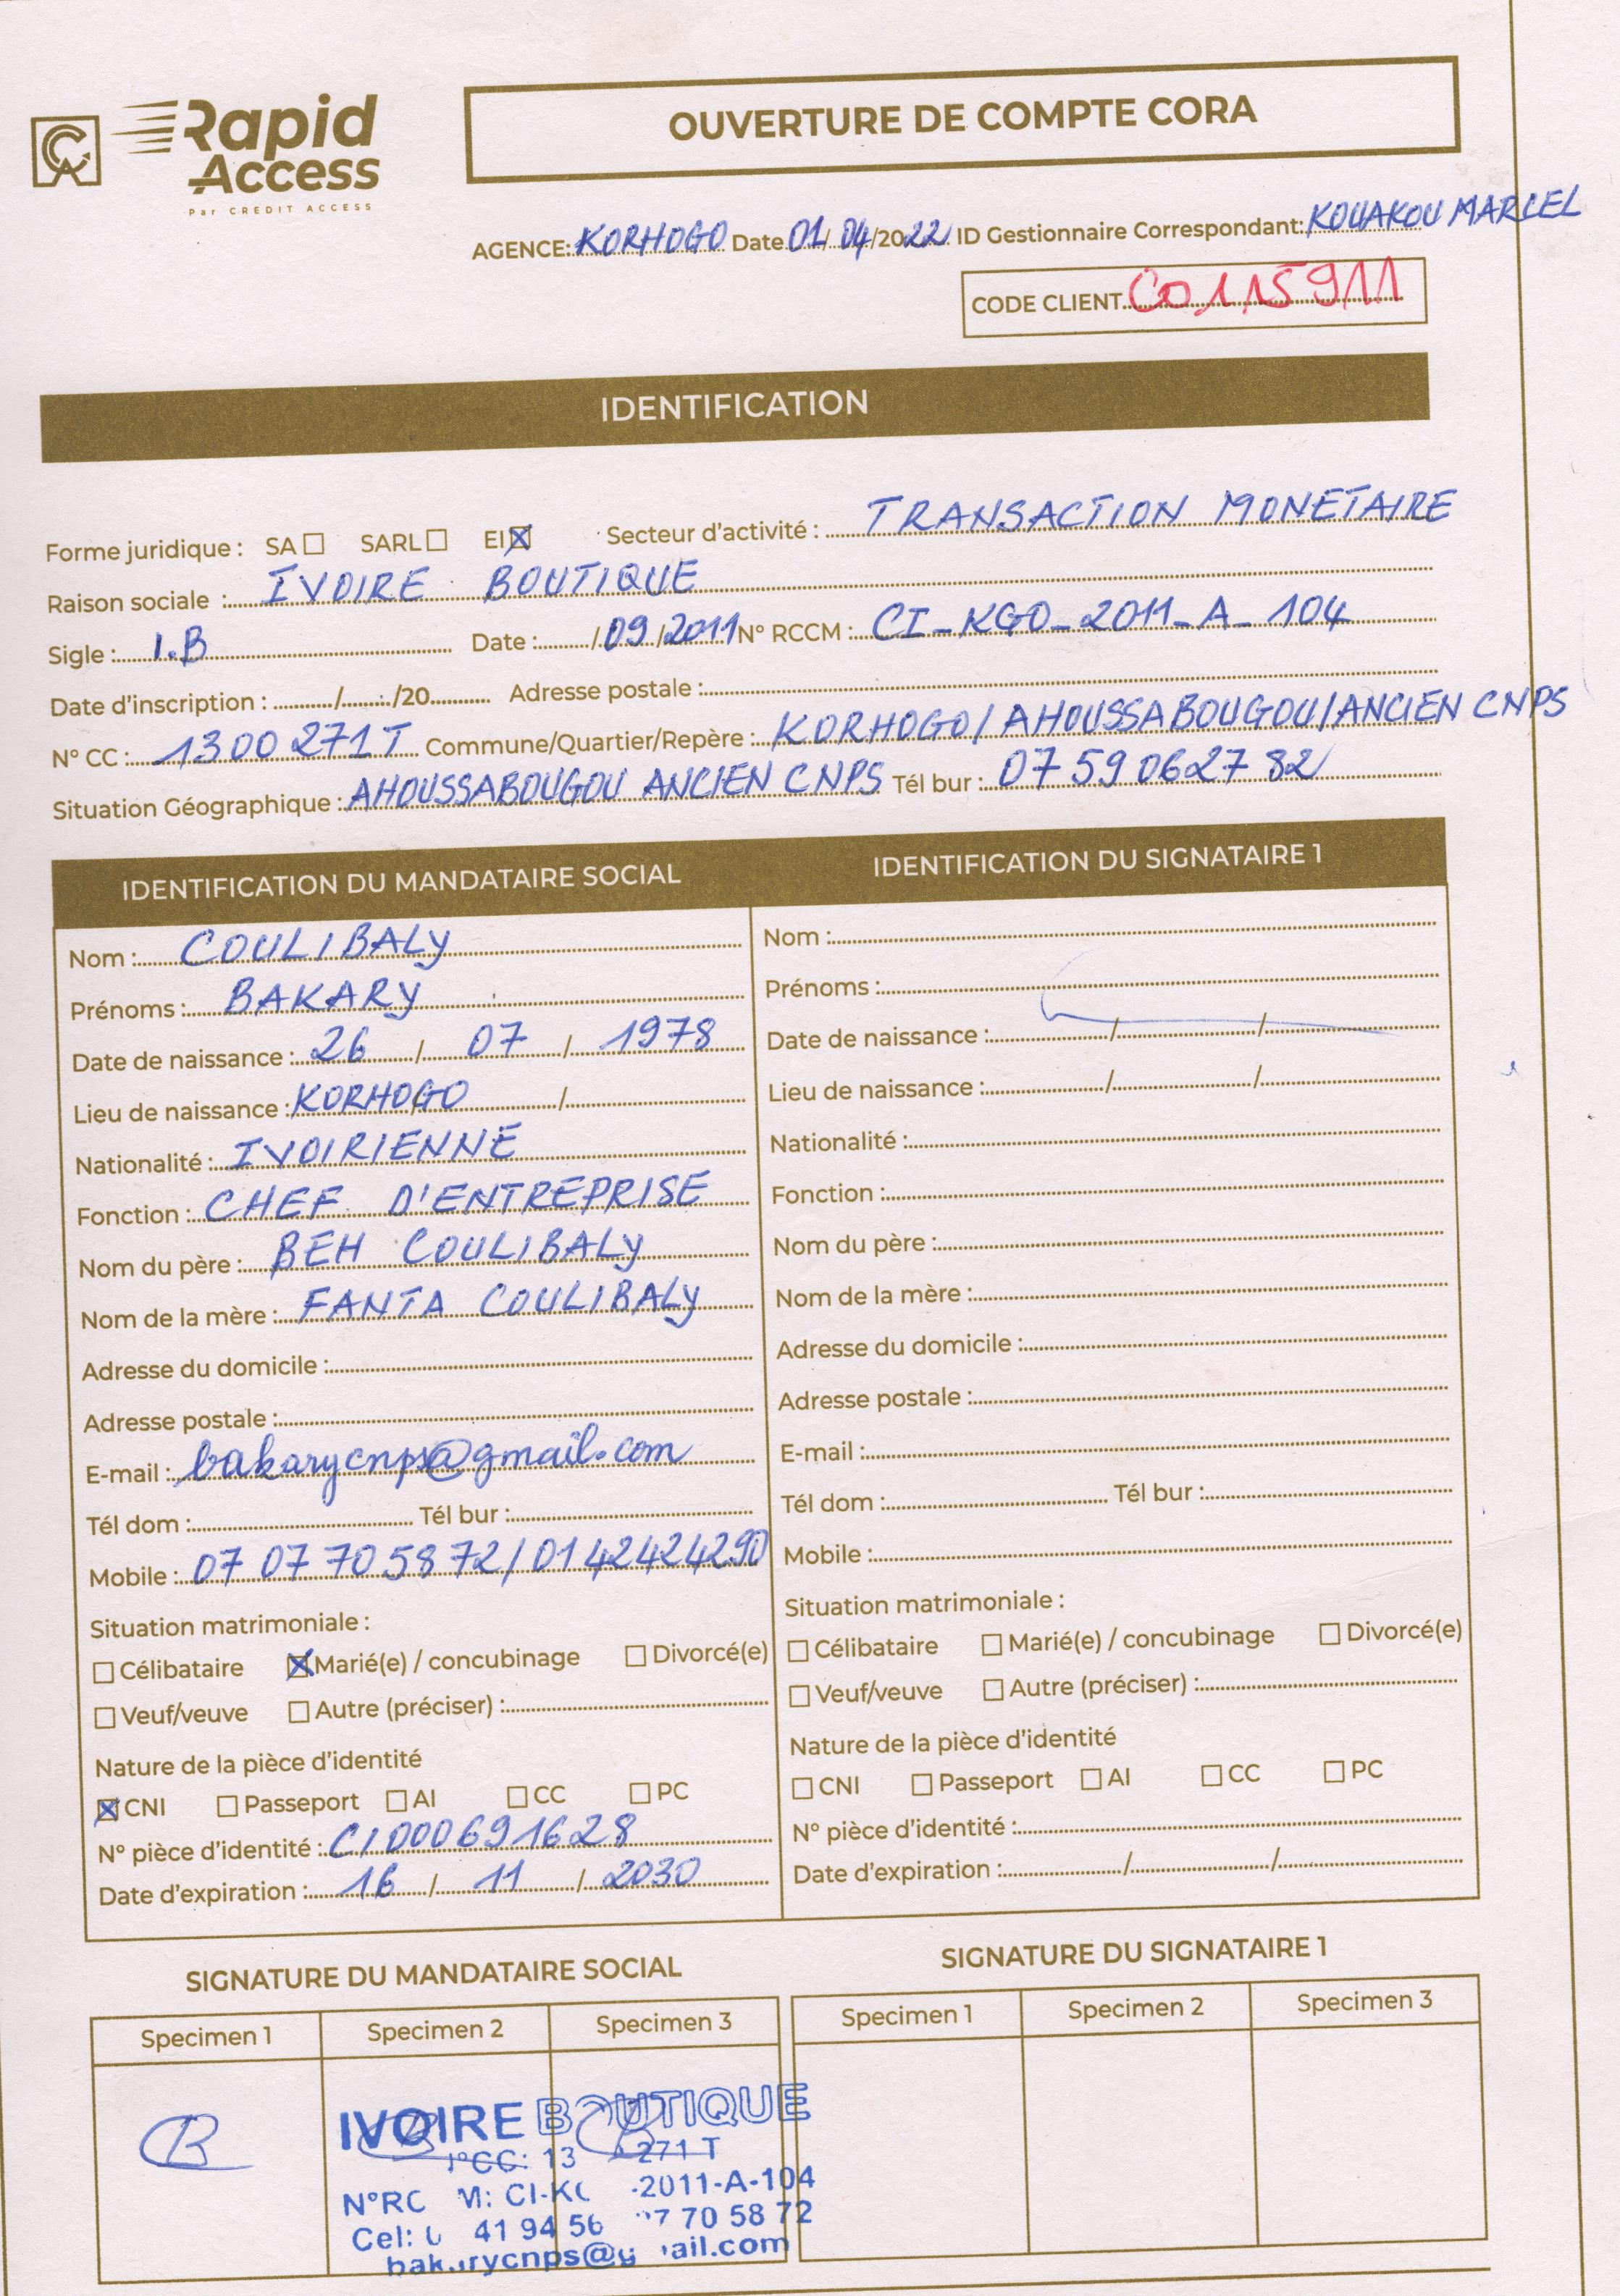 Rapid
Access
Par CREDIT ACCESS
OUVERTURE DE COMPTE CORA
AGENCE: KORHOGO Date 01/04/2022 ID Gestionnaire Correspondant: KOUAKOU MARCEL
CODE CLIENT C0115911
IDENTIFICATION
Forme juridique : SA ☐ SARL ☐ EI ☒ Secteur d'activité : TRANSACTION MONETAIRE
Raison sociale : IVOIRE BOUTIQUE
Sigle : I.B Date : ....../09/2011 N° RCCM : CI_KGO_2011_A_104
Date d'inscription : ....../....../20...... Adresse postale :
N° CC : 1300271T Commune/Quartier/Repère : KORHOGO/AHOUSSABOUGOU/ANCIEN CNPS
Situation Géographique : AHOUSSABOUGOU ANCIEN CNPS Tél bur : 07 59 06 27 82
IDENTIFICATION DU MANDATAIRE SOCIAL
Nom : COULIBALY
Prénoms : BAKARY
Date de naissance : 26 / 07 / 1978
Lieu de naissance : KORHOGO /
Nationalité : IVOIRIENNE
Fonction : CHEF D'ENTREPRISE
Nom du père : BEH COULIBALY
Nom de la mère : FANTA COULIBALY
Adresse du domicile :
Adresse postale :
E-mail : bakarycnps@gmail.com
Tél dom : Tél bur :
Mobile : 07 07 70 58 72 / 01 42 42 42 90
Situation matrimoniale :
☐ Célibataire ☒ Marié(e) / concubinage ☐ Divorcé(e)
☐ Veuf/veuve ☐ Autre (préciser) :
Nature de la pièce d'identité
☒ CNI ☐ Passeport ☐ AI ☐ CC ☐ PC
N° pièce d'identité : CI000691628
Date d'expiration : 16 / 11 / 2030
IDENTIFICATION DU SIGNATAIRE 1
Nom :
Prénoms :
Date de naissance : ....../....../......
Lieu de naissance : ....../....../......
Nationalité :
Fonction :
Nom du père :
Nom de la mère :
Adresse du domicile :
Adresse postale :
E-mail :
Tél dom : Tél bur :
Mobile :
Situation matrimoniale :
☐ Célibataire ☐ Marié(e) / concubinage ☐ Divorcé(e)
☐ Veuf/veuve ☐ Autre (préciser) :
Nature de la pièce d'identité
☐ CNI ☐ Passeport ☐ AI ☐ CC ☐ PC
N° pièce d'identité :
Date d'expiration : ....../....../......
SIGNATURE DU MANDATAIRE SOCIAL
Specimen 1 Specimen 2 Specimen 3
IVOIRE BOUTIQUE
CC: 13 271 T
CI-K -2011-A-104
Cel: 41 94 56 70 58 72
SIGNATURE DU SIGNATAIRE 1
Specimen 1 Specimen 2 Specimen 3